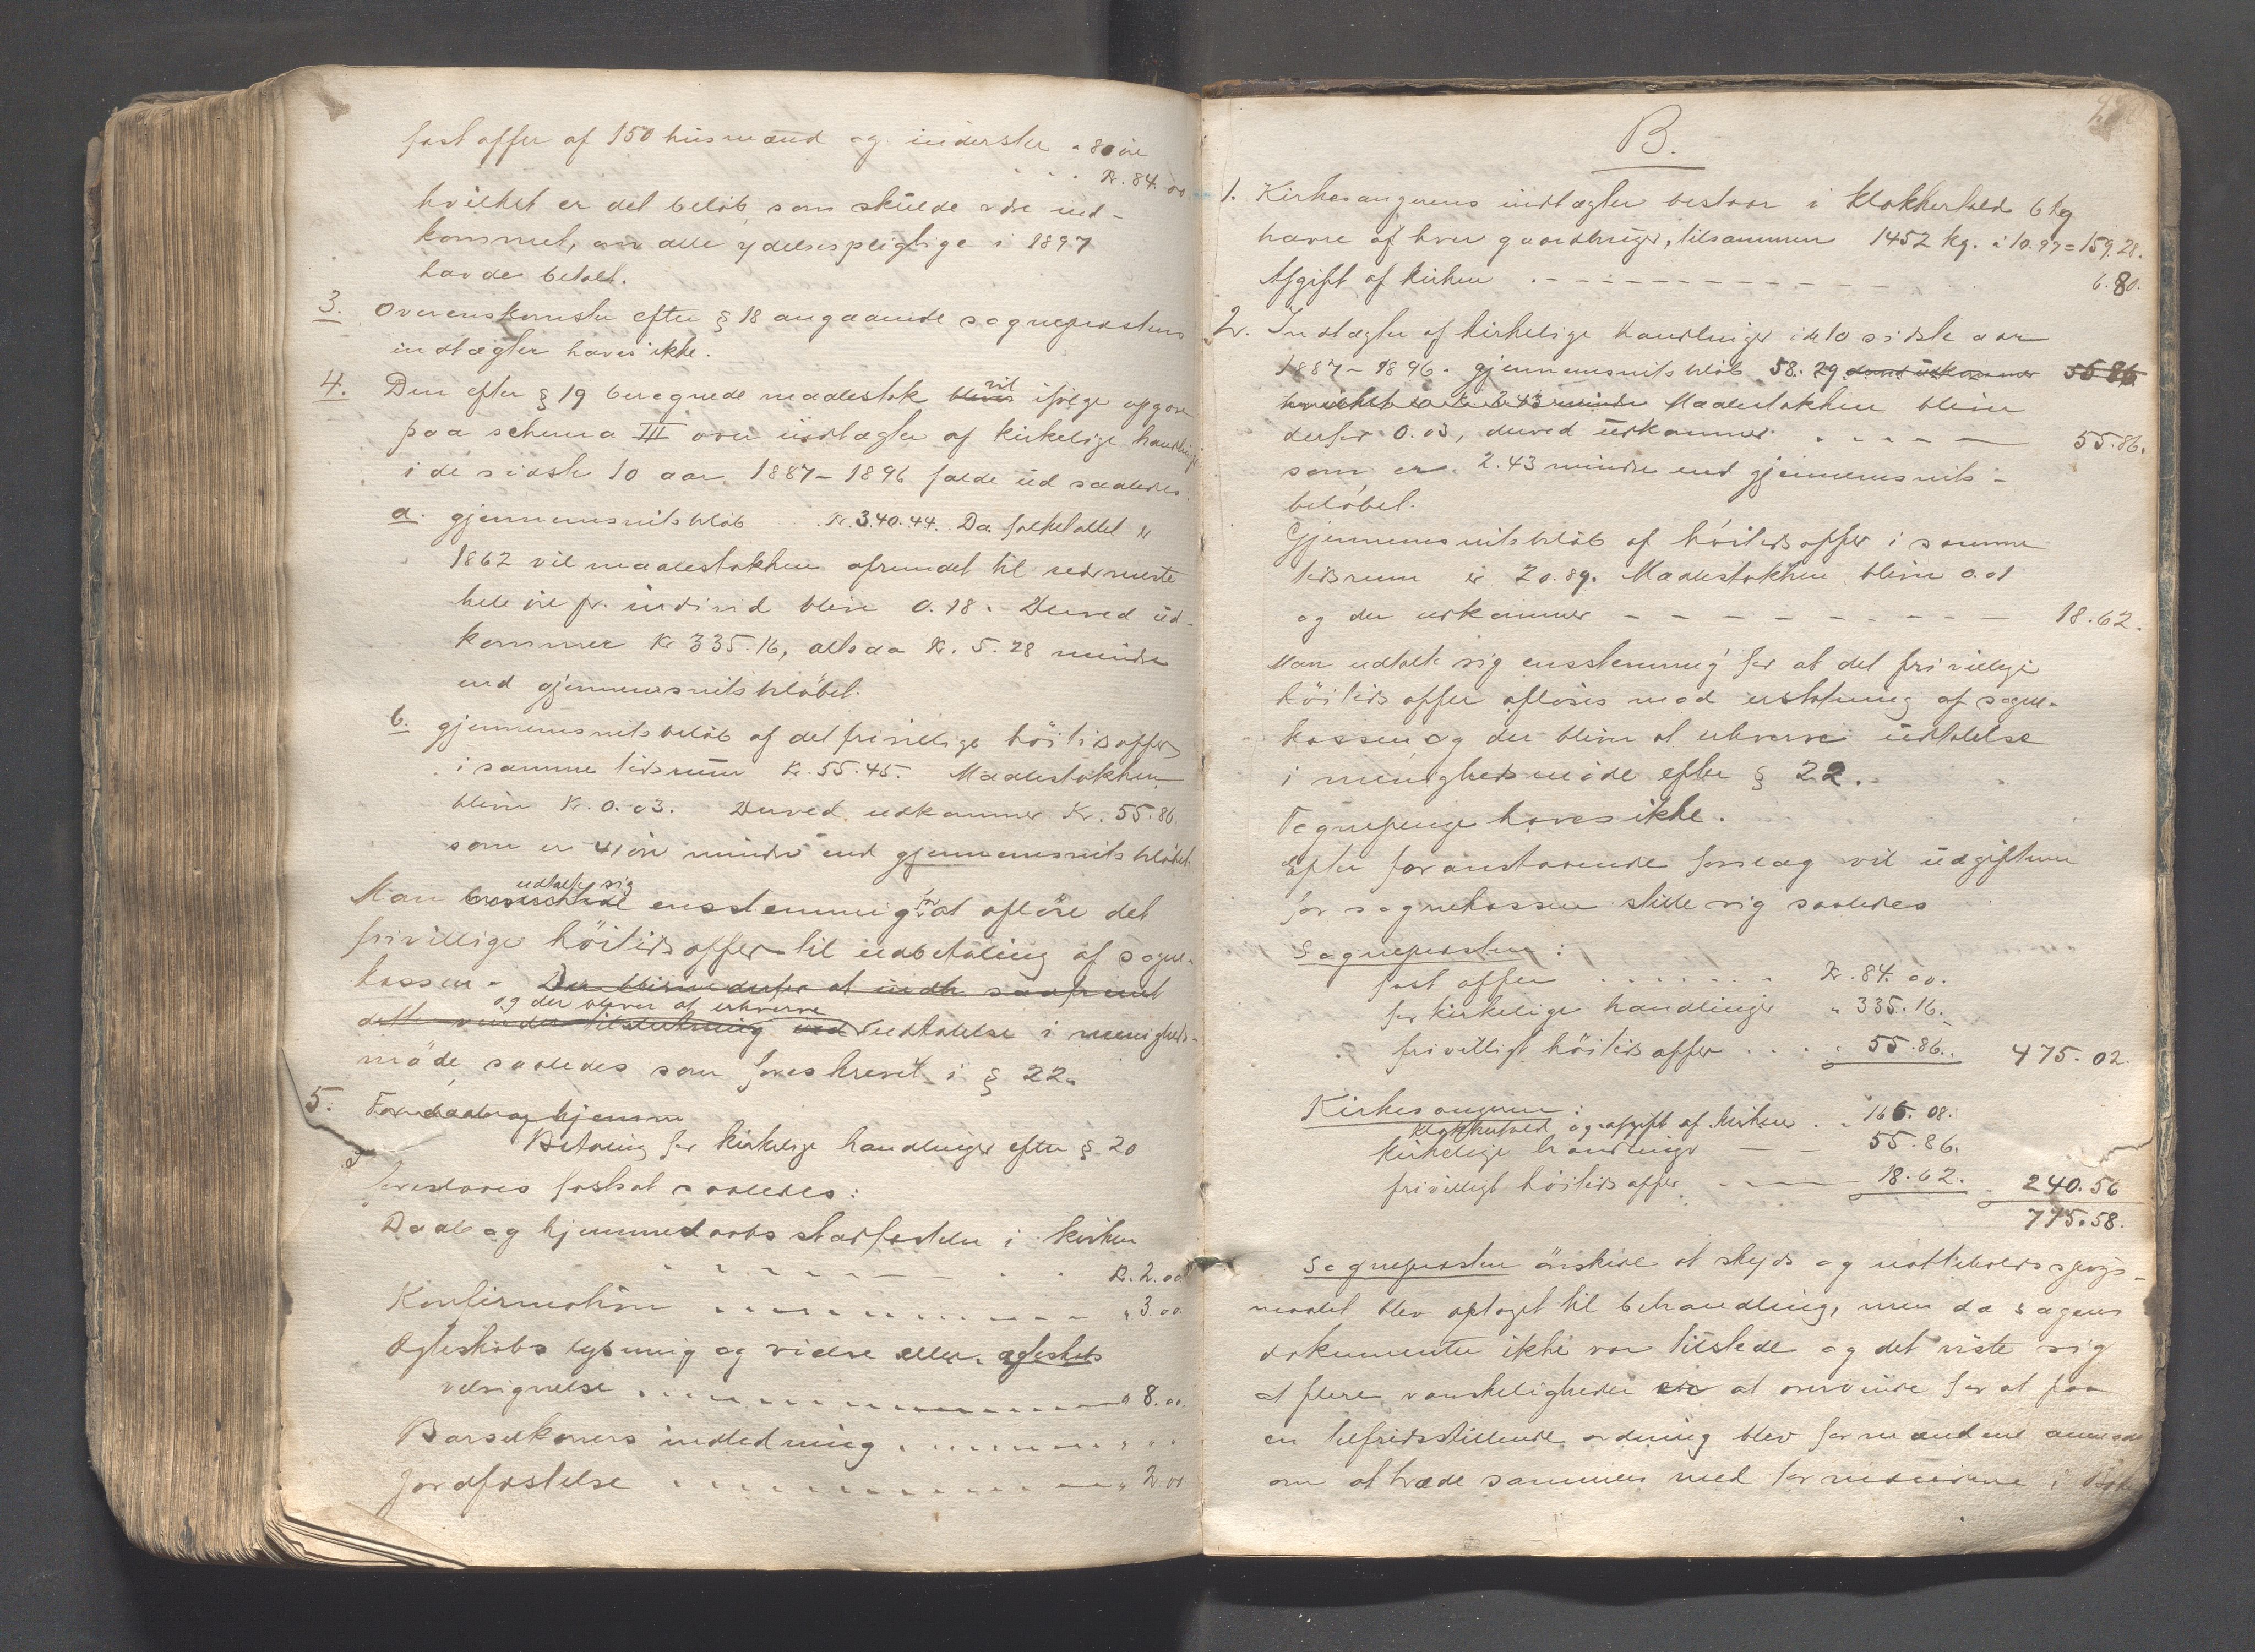 fast offer af 150 husmænd og inderster " 80 øre
Kr. 84.00
hvilket er det beløb, som skulde være ind-
kommet, om alle ydelsespligtige i 1897
havde betalt.
3. Overenskomster efter § 18 angaaende sogneprestens
indtægter haves ikke.
4. Den efter § 19 beregnede maalestok bliver vil ifølge opgave
paa schema III over indtægter af kirkelige handlinger
i de sidste 10 aar 1887–1896 falde ud saaledes:
a. gjennemsnitsbeløb . . Kr. 340.44. Da folketallet er
1862 vil maalestokken afrundet til nærmeste
hele øre pr. individ blive 0.18. Derved ud-
kommer Kr 335.16, altsaa Kr. 5.28 mindre
end gjennemsnitsbeløbet.
b. gjennemsnitsbeløb af det frivillige höitidsoffer
i samme tidsrum Kr. 55.45. Maalestokken
bliver Kr. 0.03. Derved udkommer Kr. 55.86.
som er 41 øre mindre end gjennemsnitsbeløbet.
udtalte sig
Man besluttede enstemmig for at afløse det
frivillige höitidsoffer til udbetaling af sogne-
kassen. Der bliver derfor at indh
og der bliver at erhverve
udtalelse i menigheds-
møde, saaledes som foreskrevet i § 22.
5. For daab og hjemme
Betaling for kirkelige handlinger efter § 20
foreslaaes fastsat saaledes:
Daab og hjemmedaabs stadfæstelse i kirken
Kr. 2.00
Konfirmation " 3.00
Ægteskabs lysning og vielse eller ægteskabs
velsignelse " 8.00
Barselkoners indledning " " "
Jordfæstelse " 2.00
B.
1. Kirkesangerens indtægter bestaar i klokkertold 6 kg
havre af hver gaardbruger, tilsammen 1452 kg. à 10.97 = 159.28.
Afgift af kirken 6.80.
2. Indtægter af kirkelige handlinger i de 10 sidste aar
1887–1896. gjennemsnitsbeløb 58.29 derved udkommer 55 86
hvilket er 2.43 mindre Maalestokken bliver
derfor 0.03, derved udkommer 55.86.
som er 2.43 mindre end gjennemsnits-
beløbet.
Gjennemsnitsbeløb af höitidsoffer i samme
tidsrum er 20.89. Maalestokken bliver 0.01
og der udkommer 18.62.
Man udtalte sig enstemmig for at det frivillige
höitidsoffer afløses mod erstatning af sogne-
kassen, og der bliver at erhverve udtalelse
i menighedsmøde efter § 22.
Tegnepenge haves ikke.
Efter foranstaaende forslag vil udgifterne
for sognekassen stille sig saaledes
Sognepresten:
fast offer Kr. 84.00.
for kirkelige handlinger " 335.16.
frivilligt höitidsoffer " 55.86. 475.02.
Kirkesangeren:
klokkertold og afgift af kirken " 166.08.
kirkelige handlinger 55.86.
frivilligt höitidsoffer 18.62. 240.56
715.58.
Sognepresten önskede at skyds og natteholds spørgs-
maalet blev optaget til behandling, men da sagens
dokumenter ikke var tilstede og det viste sig
at flere vanskeligheder var at overvinde for at faa
en tilfredsstillende ordning blev formændene anmodet
om at træde sammen med formændene i